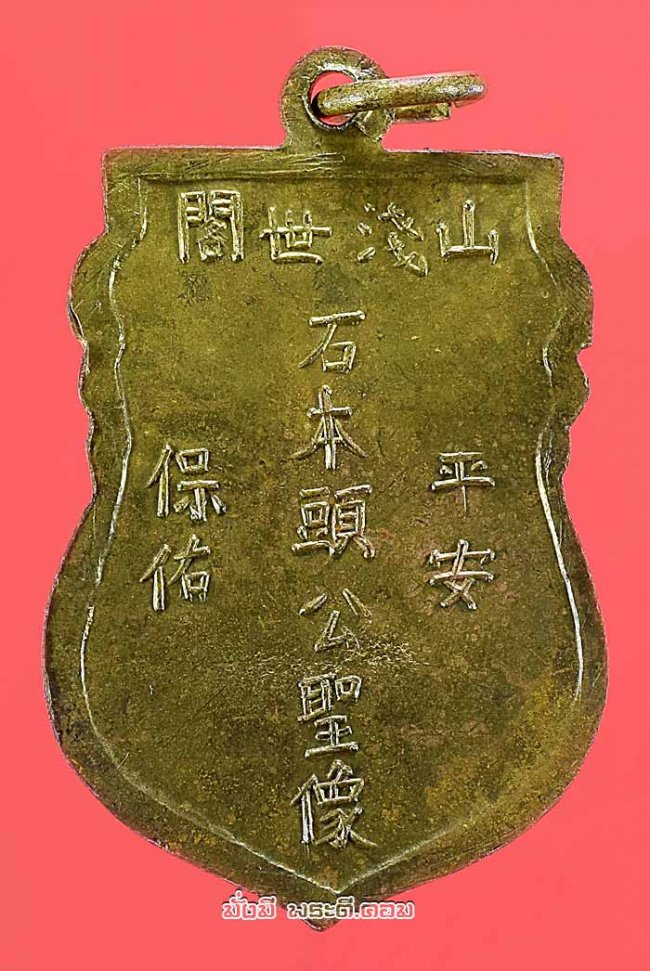 山淺世閣
平安
石本頭公聖像
保佑
มั่งมี พระดี.คอม